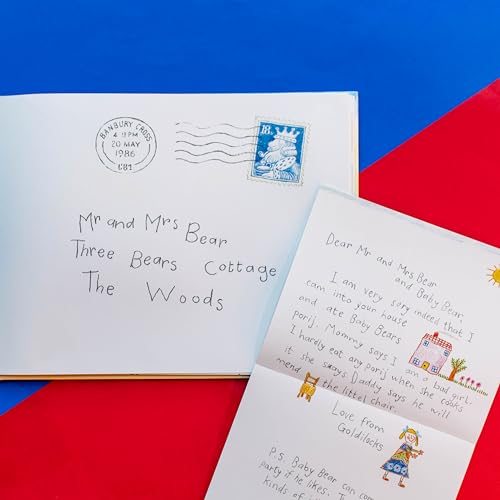 BANBURY CROSS
4 30PM
20 MAY
1986
18p
Mr and Mrs Bear
Three Bears Cottage
The Woods
Dear Mr and Mrs Bear
and Baby Bear,
I am very sory indeed that I
cam into your house
and ate Baby Bears
porij. Mommy says I am a bad girl.
I hardly eat any porij when she cooks
it she says. Daddy says he will
mend the littel chair.
Love from
Goldilocks
P.S. Baby Bear can com
party if he likes. I
kinds of